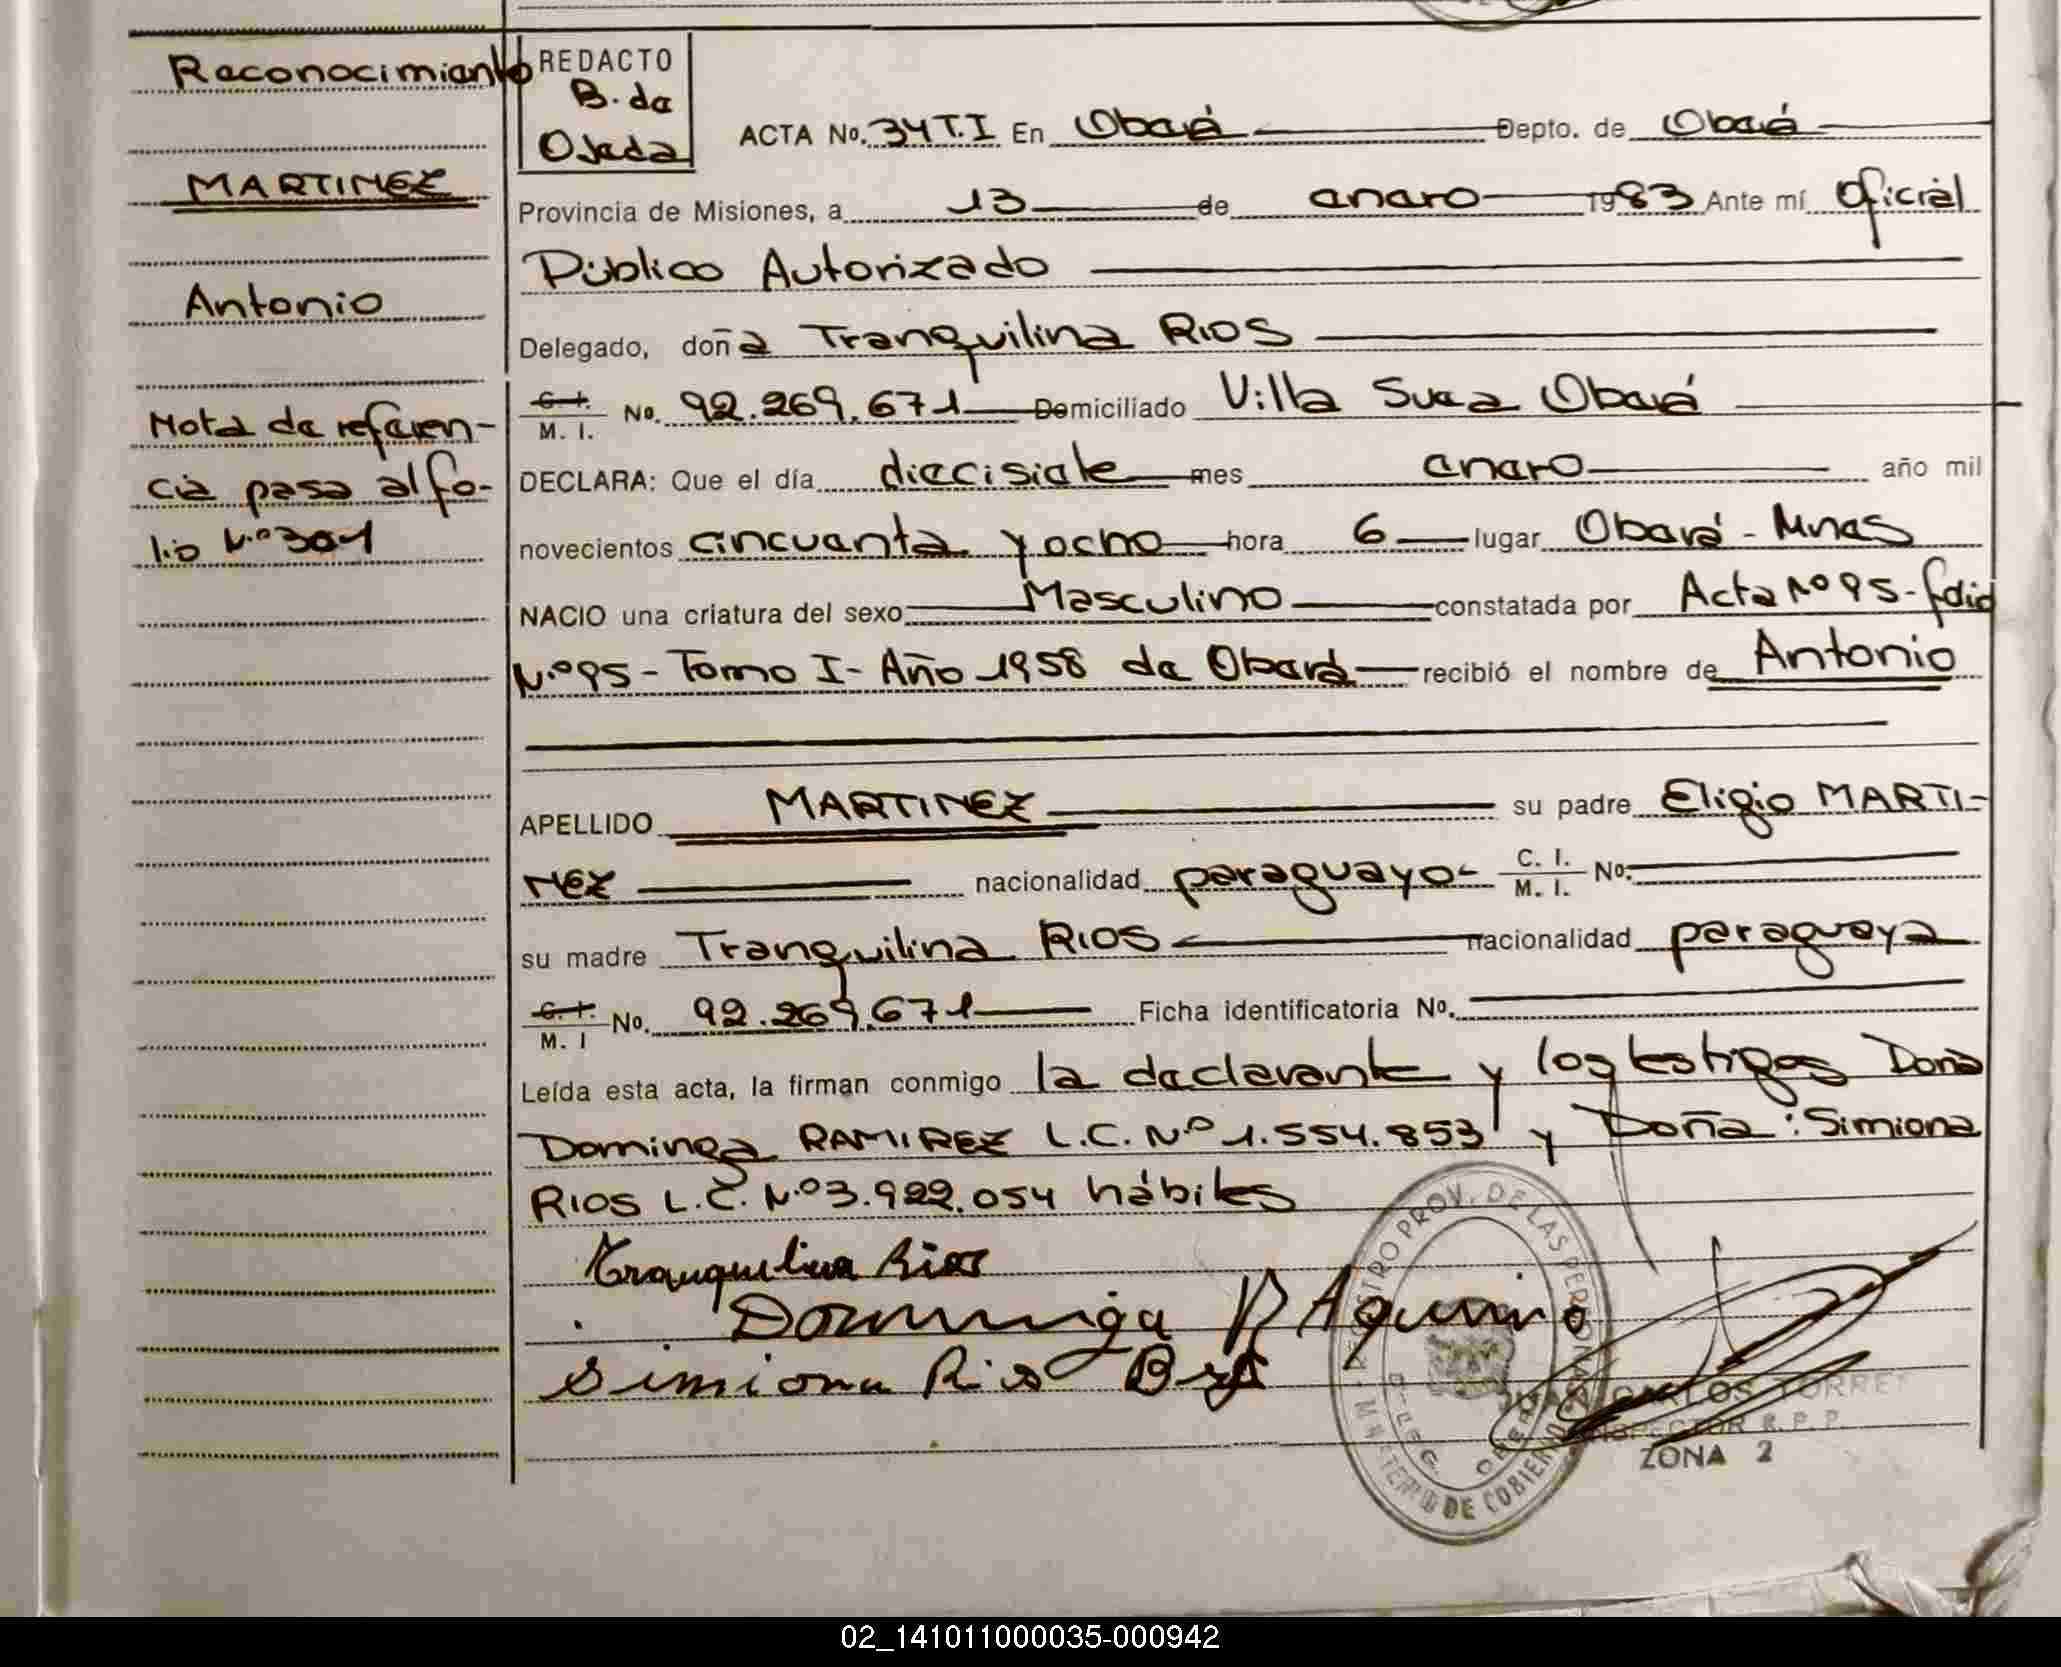 Reconocimiento
MARTINEZ
Antonio
Nota de referen-
cia pasa al fo-
lio N.º 301
REDACTO
B. de
Ojeda
ACTA No. 34 T.I En Oberá Depto. de Oberá
Provincia de Misiones, a 13 de enero 1983 Ante mí Oficial
Público Autorizado
Delegado, doña Tranquilina RIOS
C. I. M. I. No. 92.269.671 Domiciliado Villa Svea Oberá
DECLARA: Que el día diecisiete mes enero año mil
novecientos cincuenta y ocho hora 6 lugar Oberá - Mnes
NACIO una criatura del sexo Masculino constatada por Acta Nº 95 - folio
N.º 95 - Tomo I - Año 1958 de Oberá recibió el nombre de Antonio
APELLIDO MARTINEZ su padre Eligio MARTI-
NEZ nacionalidad paraguayo - C. I. M. I. No.
su madre Tranquilina RIOS nacionalidad paraguaya
C. I. M. I No. 92.269.671 Ficha identificatoria No.
Leída esta acta, la firman conmigo la declarante y los testigos Doña
Dominga RAMIREZ L.C. Nº 1.554.853 y Doña: Simiona
RIOS L.C. N.º 3.922.054 hábiles
Tranquilina Rios
Dominga R Aquino
Simiona Rios
REGISTRO PROV. DE LAS PERSONAS
MINISTERIO DE GOBIERNO
DELEG. OBERA
JUAN CARLOS TORRES
INSPECTOR R. P. P.
ZONA 2
02_141011000035-000942